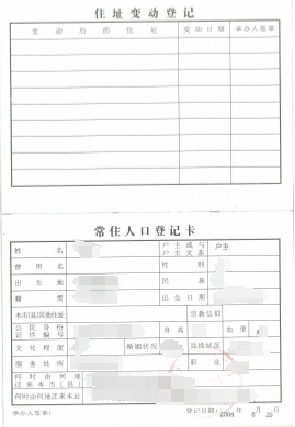 住址变动登记
变动后的住址 变动日期 承办人签章
常住人口登记卡
姓名 户主或与户主关系 户主
曾用名 性别
出生地 民族
籍贯 出生日期
本市(县)其他住址 宗教信仰
公民身份证件编号 身高 血型
文化程度 婚姻状况 兵役状况
服务处所 职业
何时由何地迁来本市(县)
何时由何地迁来本址
承办人签章: 登记日期: 年 月 日